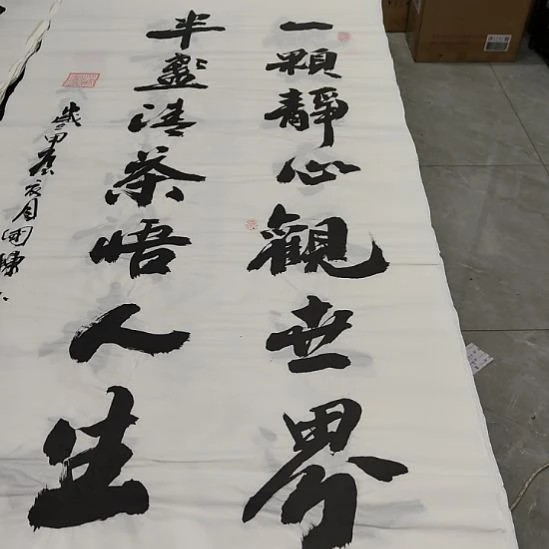 一顆靜心觀世界
半盞清茶悟人生
歲甲辰